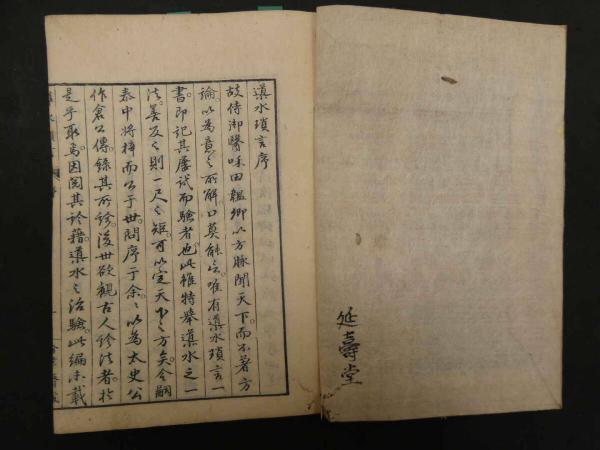 延壽堂
導水瑣言序
故侍御醫咊田韞卿以方脉聞天下而不著方
論以為意之所解口莫能言唯有導水瑣言一
書即記其屢試而驗者也此雖特舉導水之一
法善反之則一尺之矩可以定天下之方矣令嗣
泰中將梓而公于世問序于余〻以為太史公
作倉公傳錄其所診後世欲觀古人診法者於
是乎取焉因閱其診籍導水之治驗此編未載